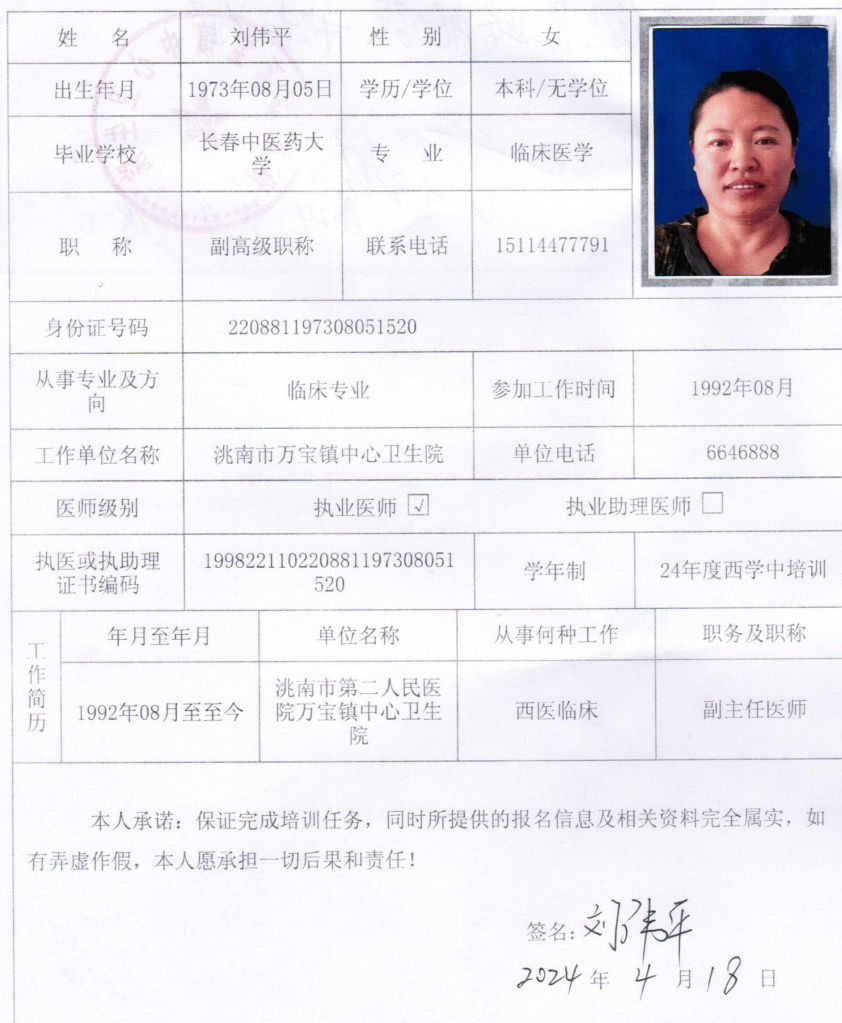 姓 名 刘伟平 性 别 女
出生年月 1973年08月05日 学历/学位 本科/无学位
毕业学校 长春中医药大 专 业 临床医学
学
职 称 副高级职称 联系电话 15114477791
身份证号码 220881197308051520
从事专业及方 临床专业 参加工作时间 1992年08月
向
工作单位名称 洮南市万宝镇中心卫生院 单位电话 6646888
医师级别 执业医师 √ 执业助理医师
执医或执助理 199822110220881197308051 学年制 24年度西学中培训
证书编码 520
工作简历 年月至年月 单位名称 从事何种工作 职务及职称
1992年08月至至今 洮南市第二人民医 西医临床 副主任医师
院万宝镇中心卫生
院
本人承诺：保证完成培训任务，同时所提供的报名信息及相关资料完全属实，如
有弄虚作假，本人愿承担一切后果和责任！
签名：刘伟平
2024 年 4 月 18 日